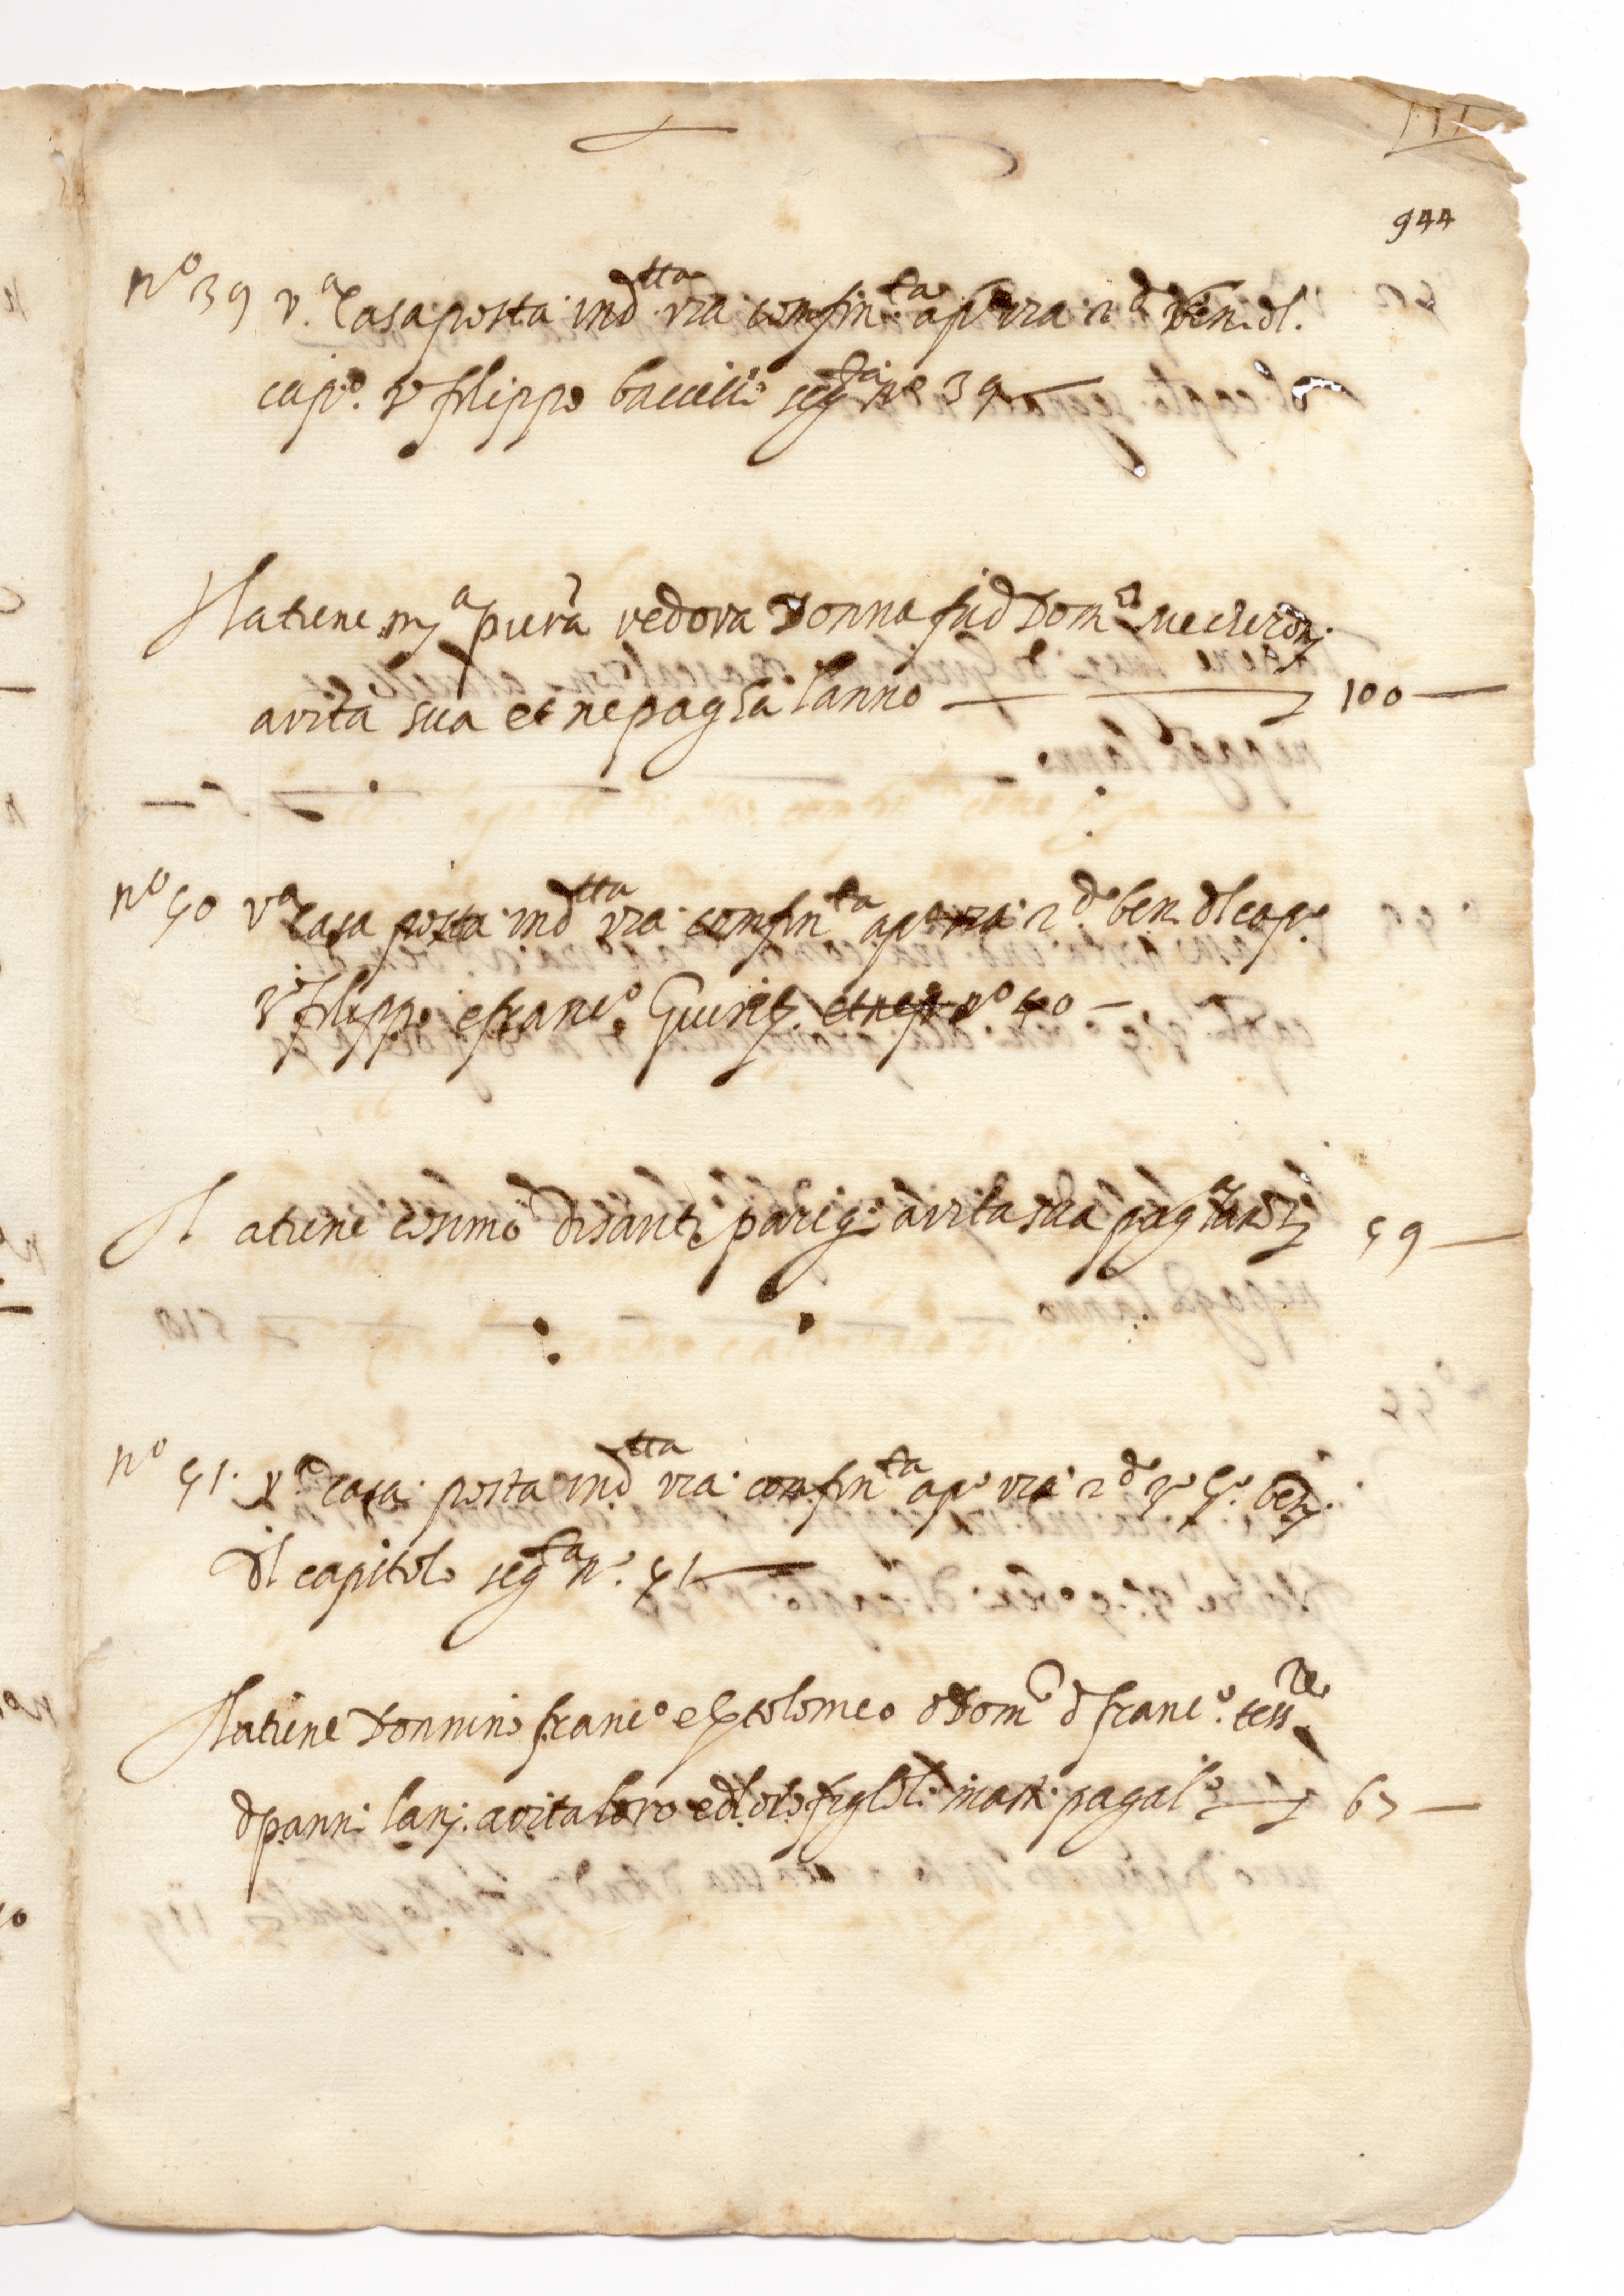 944
nº 39 v.ª Casa posta in d.tta via confin.ta a pº via 2.d ben. dl.
capº. 3º filippo baccelli seg.ta nº 39
La tiene mª piera vedova Donna fu d Dom.co
a vita sua et ne paga lanno 100
nº 40 vª Casa posta in d.tta via confin.ta a pº via 2.dº ben. dl capº
3º filippo e francº Guin nº 40
La tiene cosimo di santi parigi a vita sua pag 49
nº 41. vª casa posta in d.tta via confin.ta a pº via 2.dº 3º 4º benj
dl capitolo seg.ta nº. 41
La tiene Donnino francº e Btolomeo d Dom.co d francº. tess.re
d panni lanj. a vita loro e dl loro figlioli masti paga lº 63